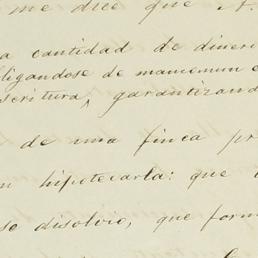 me dice que N.
a cantidad de diner
ligandose de mancomun e
scritura, garantizand
de una finca pr
n hipotecarla: que
se disolvio, que form